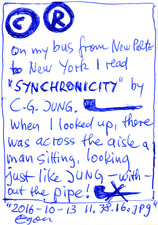 C R
on my bus from New Paltz
to New York I read
"SYNCHRONICITY" by
C.G. JUNG.
When I looked up, there
was across the aisle a
man sitting, looking
just like JUNG - with-
out the pipe!
"2016-10-13 11.35.16.jpg"